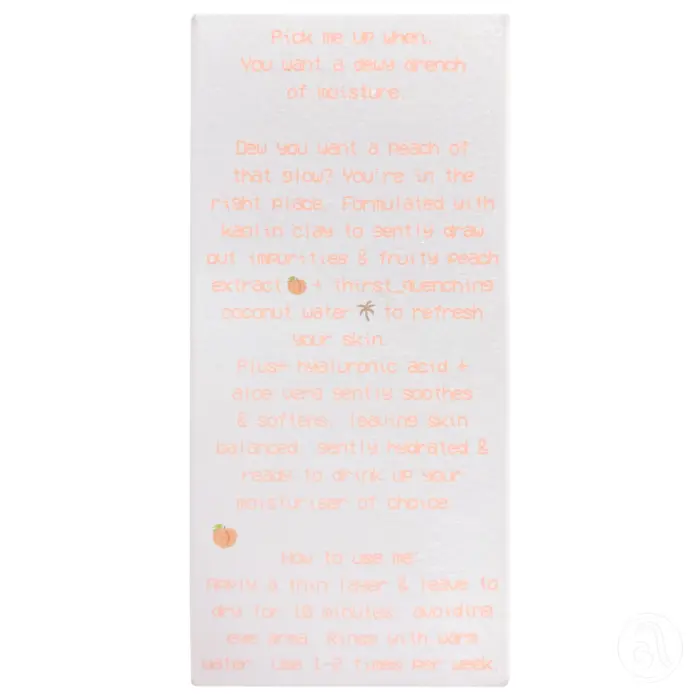 Pick me up when..
You want a dewy drench
of moisture.
Dew you want a peach of
that glow? You're in the
right place. Formulated with
kaolin clay to gently draw
out impurities & fruity peach
extract + thirst_quenching
coconut water to refresh
your skin.
Plus+ hyaluronic acid +
aloe vera gently soothes
& softens, leaving skin
balanced, gently hydrated &
ready to drink up your
moisturiser of choice.
How to use me:
Apply a thin layer & leave to
dry for 10 minutes, avoiding
eye area. Rinse with warm
water. Use 1-2 times per week.